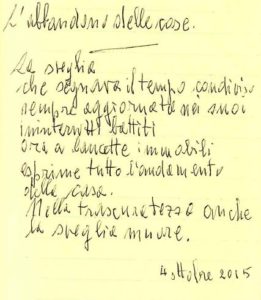 L'abbandono delle cose.
La sveglia
che segnava il tempo condiviso
sempre aggiornata nei suoi
ininterrotti battiti
ora a lancette immobili
esprime tutto l'andamento
della casa.
Nella trascuratezza anche
la sveglia muore.
4 ottobre 2015